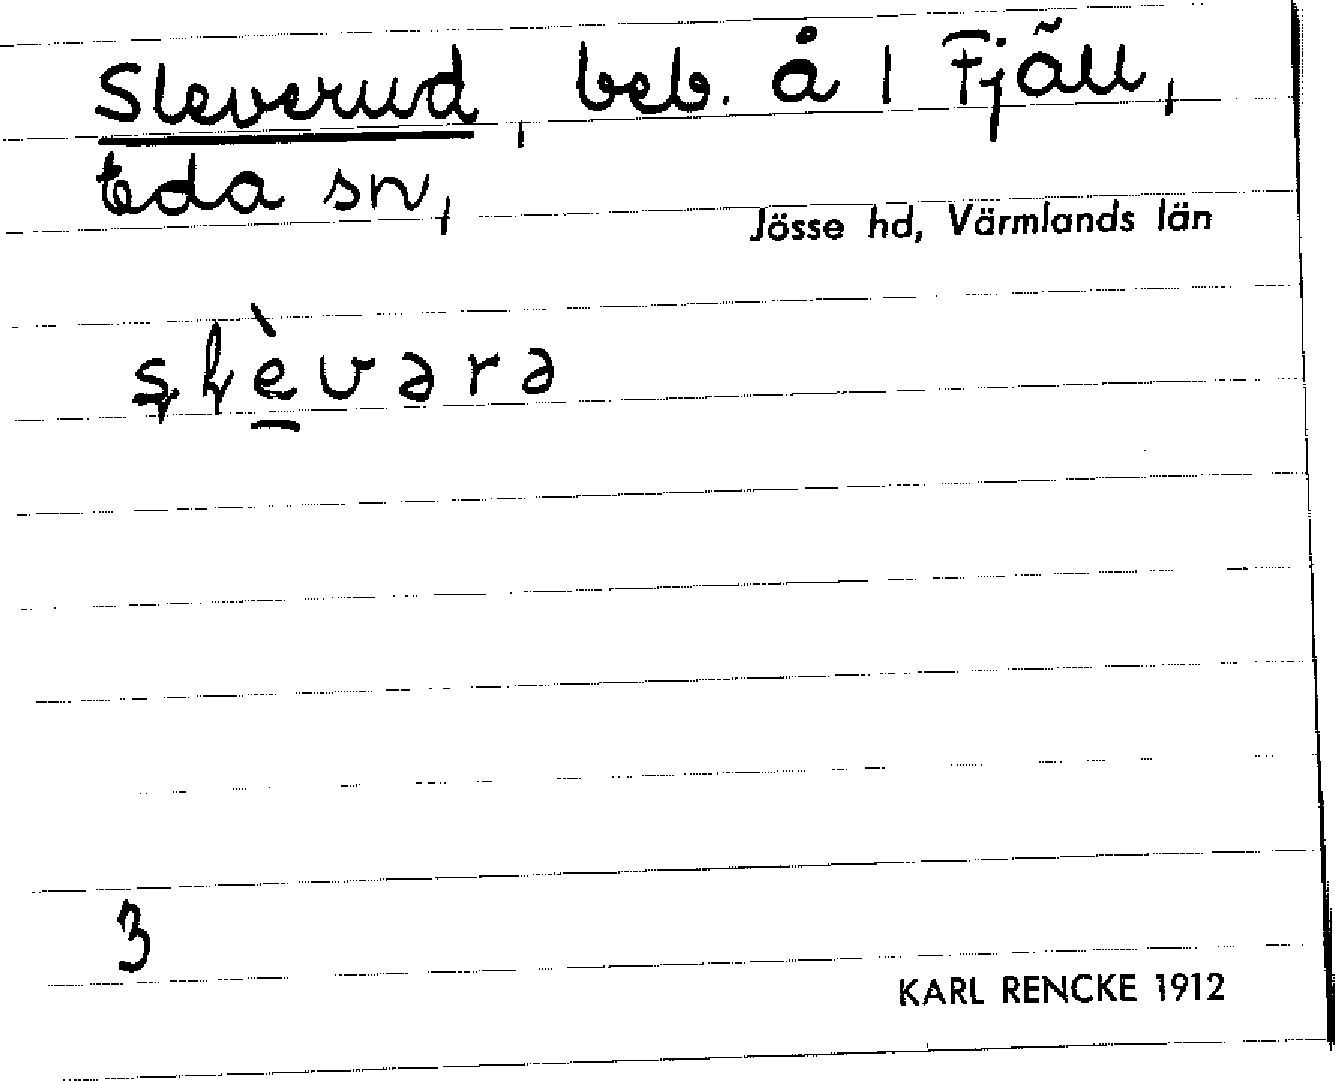 Sleverud, beb. å 1 Fjäll,
Eda sn,
Jösse hd, Värmlands län
ʂɭèvərə
3
KARL RENCKE 1912